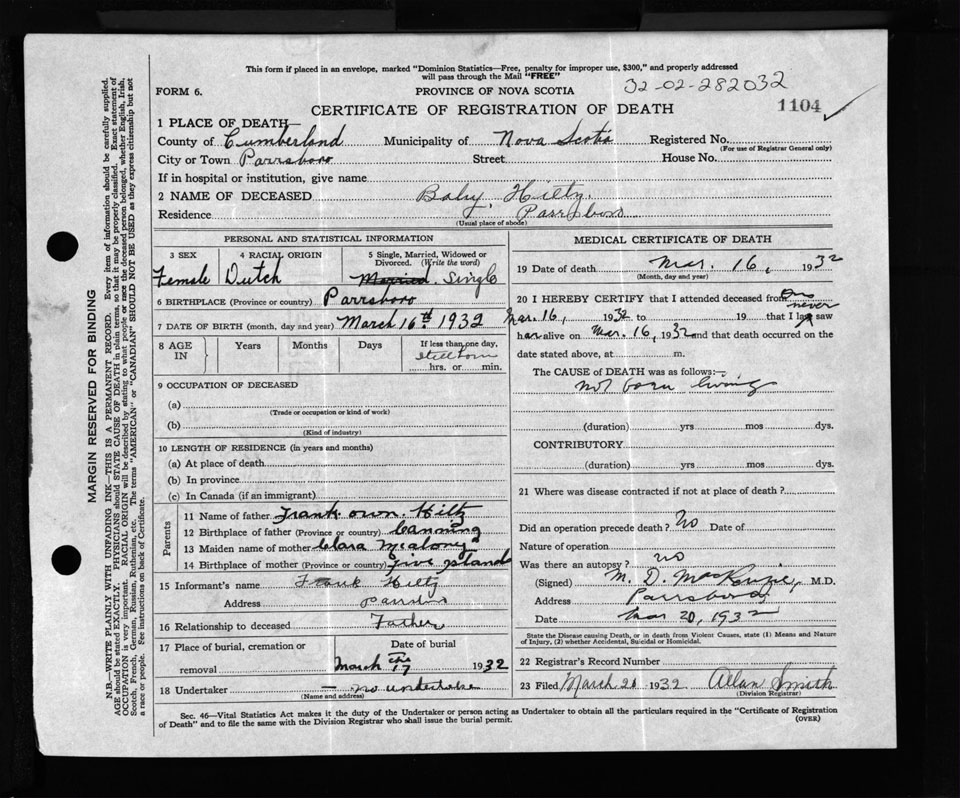 This form if placed in an envelope, marked "Dominion Statistics—Free, penalty for improper use, $300," and properly addressed
will pass through the Mail "FREE"
32-02-282032
FORM 6.
PROVINCE OF NOVA SCOTIA
CERTIFICATE OF REGISTRATION OF DEATH
1104
1 PLACE OF DEATH—
County of Cumberland Municipality of Nova Scotia Registered No.
(For use of Registrar General only)
City or Town Parrsboro Street House No.
If in hospital or institution, give name
2 NAME OF DECEASED Baby Hiltz
Residence Parrsboro
(Usual place of abode)
PERSONAL AND STATISTICAL INFORMATION
3 SEX 4 RACIAL ORIGIN 5 Single, Married, Widowed or
Divorced. (Write the word)
Female Dutch Married Single
6 BIRTHPLACE (Province or country) Parrsboro
7 DATE OF BIRTH (month, day and year) March 16th 1932
8 AGE IN Years Months Days If less than one day,
Stillborn
hrs. or min.
9 OCCUPATION OF DECEASED
(a)
(Trade or occupation or kind of work)
(b)
(Kind of industry)
10 LENGTH OF RESIDENCE (in years and months)
(a) At place of death
(b) In province
(c) In Canada (if an immigrant)
Parents
11 Name of father Frank own Hiltz
12 Birthplace of father (Province or country) Canning
13 Maiden name of mother Clara Mcalony
14 Birthplace of mother (Province or country) Five Islands
15 Informant's name Frank Hiltz
Address Parrsboro
16 Relationship to deceased Father
17 Place of burial, cremation or removal Date of burial
March the 17 1932
18 Undertaker — no undertaker
(Name and address)
MEDICAL CERTIFICATE OF DEATH
19 Date of death Mar. 16, 1932
(Month, day and year)
20 I HEREBY CERTIFY that I attended deceased from on
Mar. 16, 1932 to 19 that I last never saw
her alive on Mar. 16, 1932 and that death occurred on the
date stated above, at m.
The CAUSE of DEATH was as follows:—
not born living
(duration) yrs mos dys.
CONTRIBUTORY
(duration) yrs mos dys.
21 Where was disease contracted if not at place of death?
Did an operation precede death? No Date of
Nature of operation
Was there an autopsy? no
(Signed) M. D. MacKenzie, M.D.
Address Parrsboro,
Date Mar 20, 1932
State the Disease causing Death, or in death from Violent Causes, state (1) Means and Nature
of Injury, (2) whether Accidental, Suicidal or Homicidal.
22 Registrar's Record Number
23 Filed March 21 1932 Allan Smith
(Division Registrar)
Sec. 46—Vital Statistics Act makes it the duty of the Undertaker or person acting as Undertaker to obtain all the particulars required in the "Certificate of Registration
of Death" and to file the same with the Division Registrar who shall issue the burial permit.
(OVER)
MARGIN RESERVED FOR BINDING
N.B.—WRITE PLAINLY WITH UNFADING INK—THIS IS A PERMANENT RECORD. Every item of information should be carefully supplied.
AGE should be stated EXACTLY. PHYSICIANS should STATE CAUSE OF DEATH in plain terms, so that it may be properly classified. Exact statement of
OCCUPATION is very important. RACIAL ORIGIN will be described by stating to what people or race the deceased person belonged, whether English, Irish,
Scotch, French, German, Russian, Ruthenian, etc. The terms "AMERICAN" or "CANADIAN" SHOULD NOT BE USED as they express citizenship but not
a race or people. See instructions on back of Certificate.